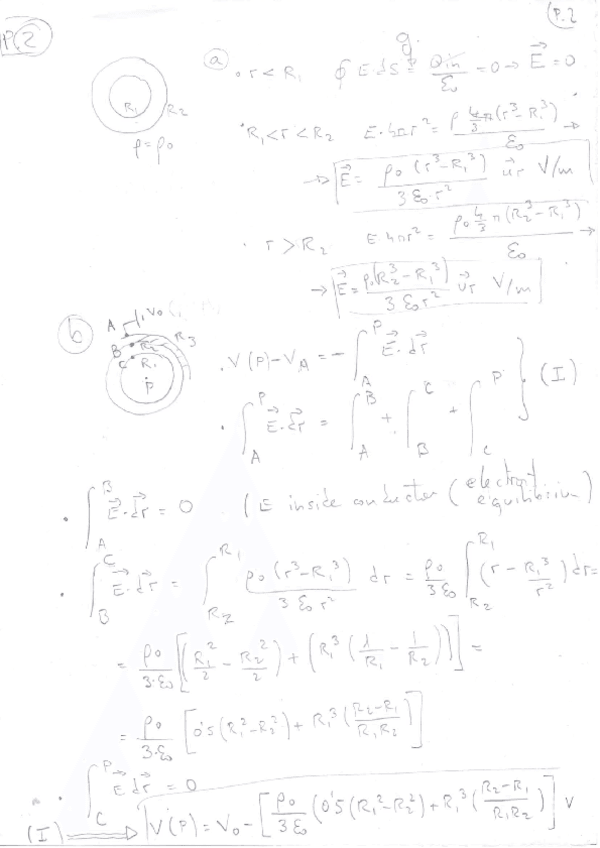 P.2
P.2
g.
(a) · r < R₁ ∮ E·dS = Qin/ε₀ = 0 → E⃗ = 0
R₁ R₂
ρ = ρ₀
· R₁ < r < R₂ E·4πr² = ρ 4/3 π (r³ - R₁³)/ε₀ →
→ E⃗ = ρ₀ (r³ - R₁³)/(3 ε₀ · r²) u⃗r V/m
· r > R₂ E 4πr² = ρ₀ 4/3 π (R₂³ - R₁³)/ε₀ →
→ E⃗ = ρ₀ (R₂³ - R₁³)/(3 ε₀ r²) u⃗r V/m
(b) A V₀ R₃
B R₂
C R₁
P
· V(P) - V_A = - ∫_A^P E⃗ · dr⃗
· ∫_A^P E⃗ · dr⃗ = ∫_A^B + ∫_B^C + ∫_C^P } (I)
· ∫_A^B E⃗ · dr⃗ = 0 (E inside conductor (electrost equilibrium)
· ∫_B^C E⃗ · dr⃗ = ∫_R₂^R₁ ρ₀ (r³ - R₁³)/(3 ε₀ r²) dr = ρ₀/(3 ε₀) ∫_R₂^R₁ (r - R₁³/r²) dr =
= ρ₀/(3·ε₀) [(R₁²/2 - R₂²/2) + (R₁³ (1/R₁ - 1/R₂))] =
= ρ₀/(3·ε₀) [0'5 (R₁² - R₂²) + R₁³ ((R₂ - R₁)/(R₁R₂))]
· ∫_C^P E⃗ · dr⃗ = 0
(I) ⟹ V(P) = V₀ - [ρ₀/(3 ε₀) (0'5 (R₁² - R₂²) + R₁³ ((R₂ - R₁)/(R₁R₂))] V